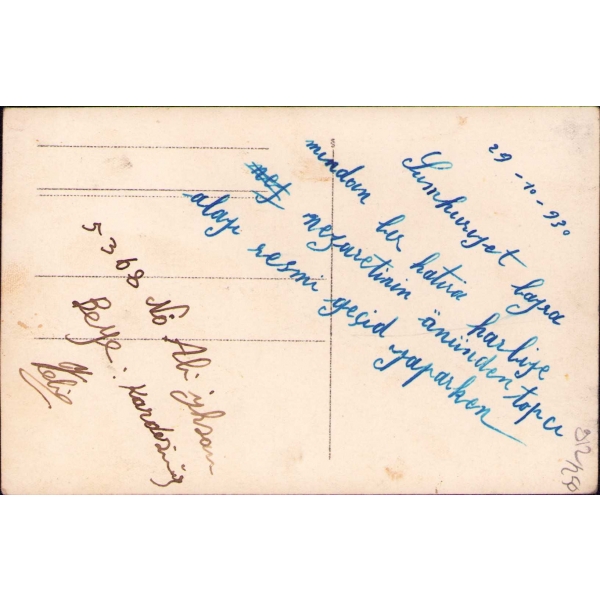 29-10-930
Cumhuriyet bayra
mından bir hatıra harbiye
nezaretinin önünden topcı
alayı resmi geçid yaparken
5368 No Ali ihsan
Beye. Kardeşiniz
912/150